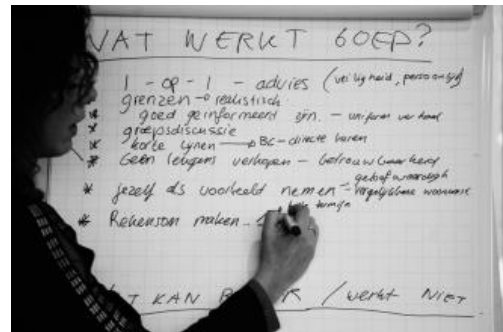 WAT WERKT GOED?
1 - op - 1 - advies (veiligheid, persoonlijk)
grenzen → realistisch
* goed geinformeerd zijn. - uniform verhaal
* groepsdiscussie
* korte lijnen → BC - directe
* Geen leugens verkopen - betrouwbaarheid
geloofwaardigh
* jezelf als voorbeeld nemen - vergelijkbare
termijn
* Rekensom maken -
KAN / werkt NIET